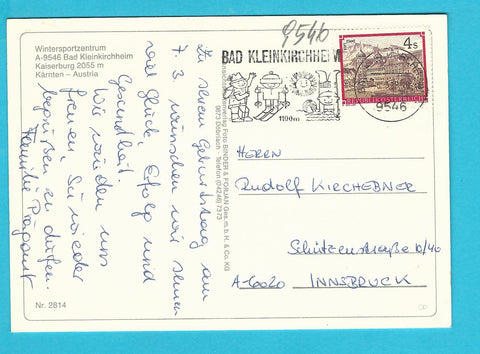 Wintersportzentrum
A-9546 Bad Kleinkirchheim
Kaiserburg 2055 m
Kärnten – Austria
9546
BAD KLEINKIRCHHEIM
1100m
4s
REPUBLIK ÖSTERREICH
9546
Zu Ihrem Geburtstag am
7. 3 wünschen wir Ihnen
viel Glück, Erfolg und
Gesundheit.
Wir würden uns
freuen, Sie wieder
begrüßen zu dürfen.
Familie
Foto BINDER & FORJAN Ges.m.b.H. & Co. KG
9873 Döbriach - Telefon (04246) 7373
HERRN
Rudolf KIRCHEBNER
Schützenstraße 
A-6020 INNSBRUCK
Nr. 2814